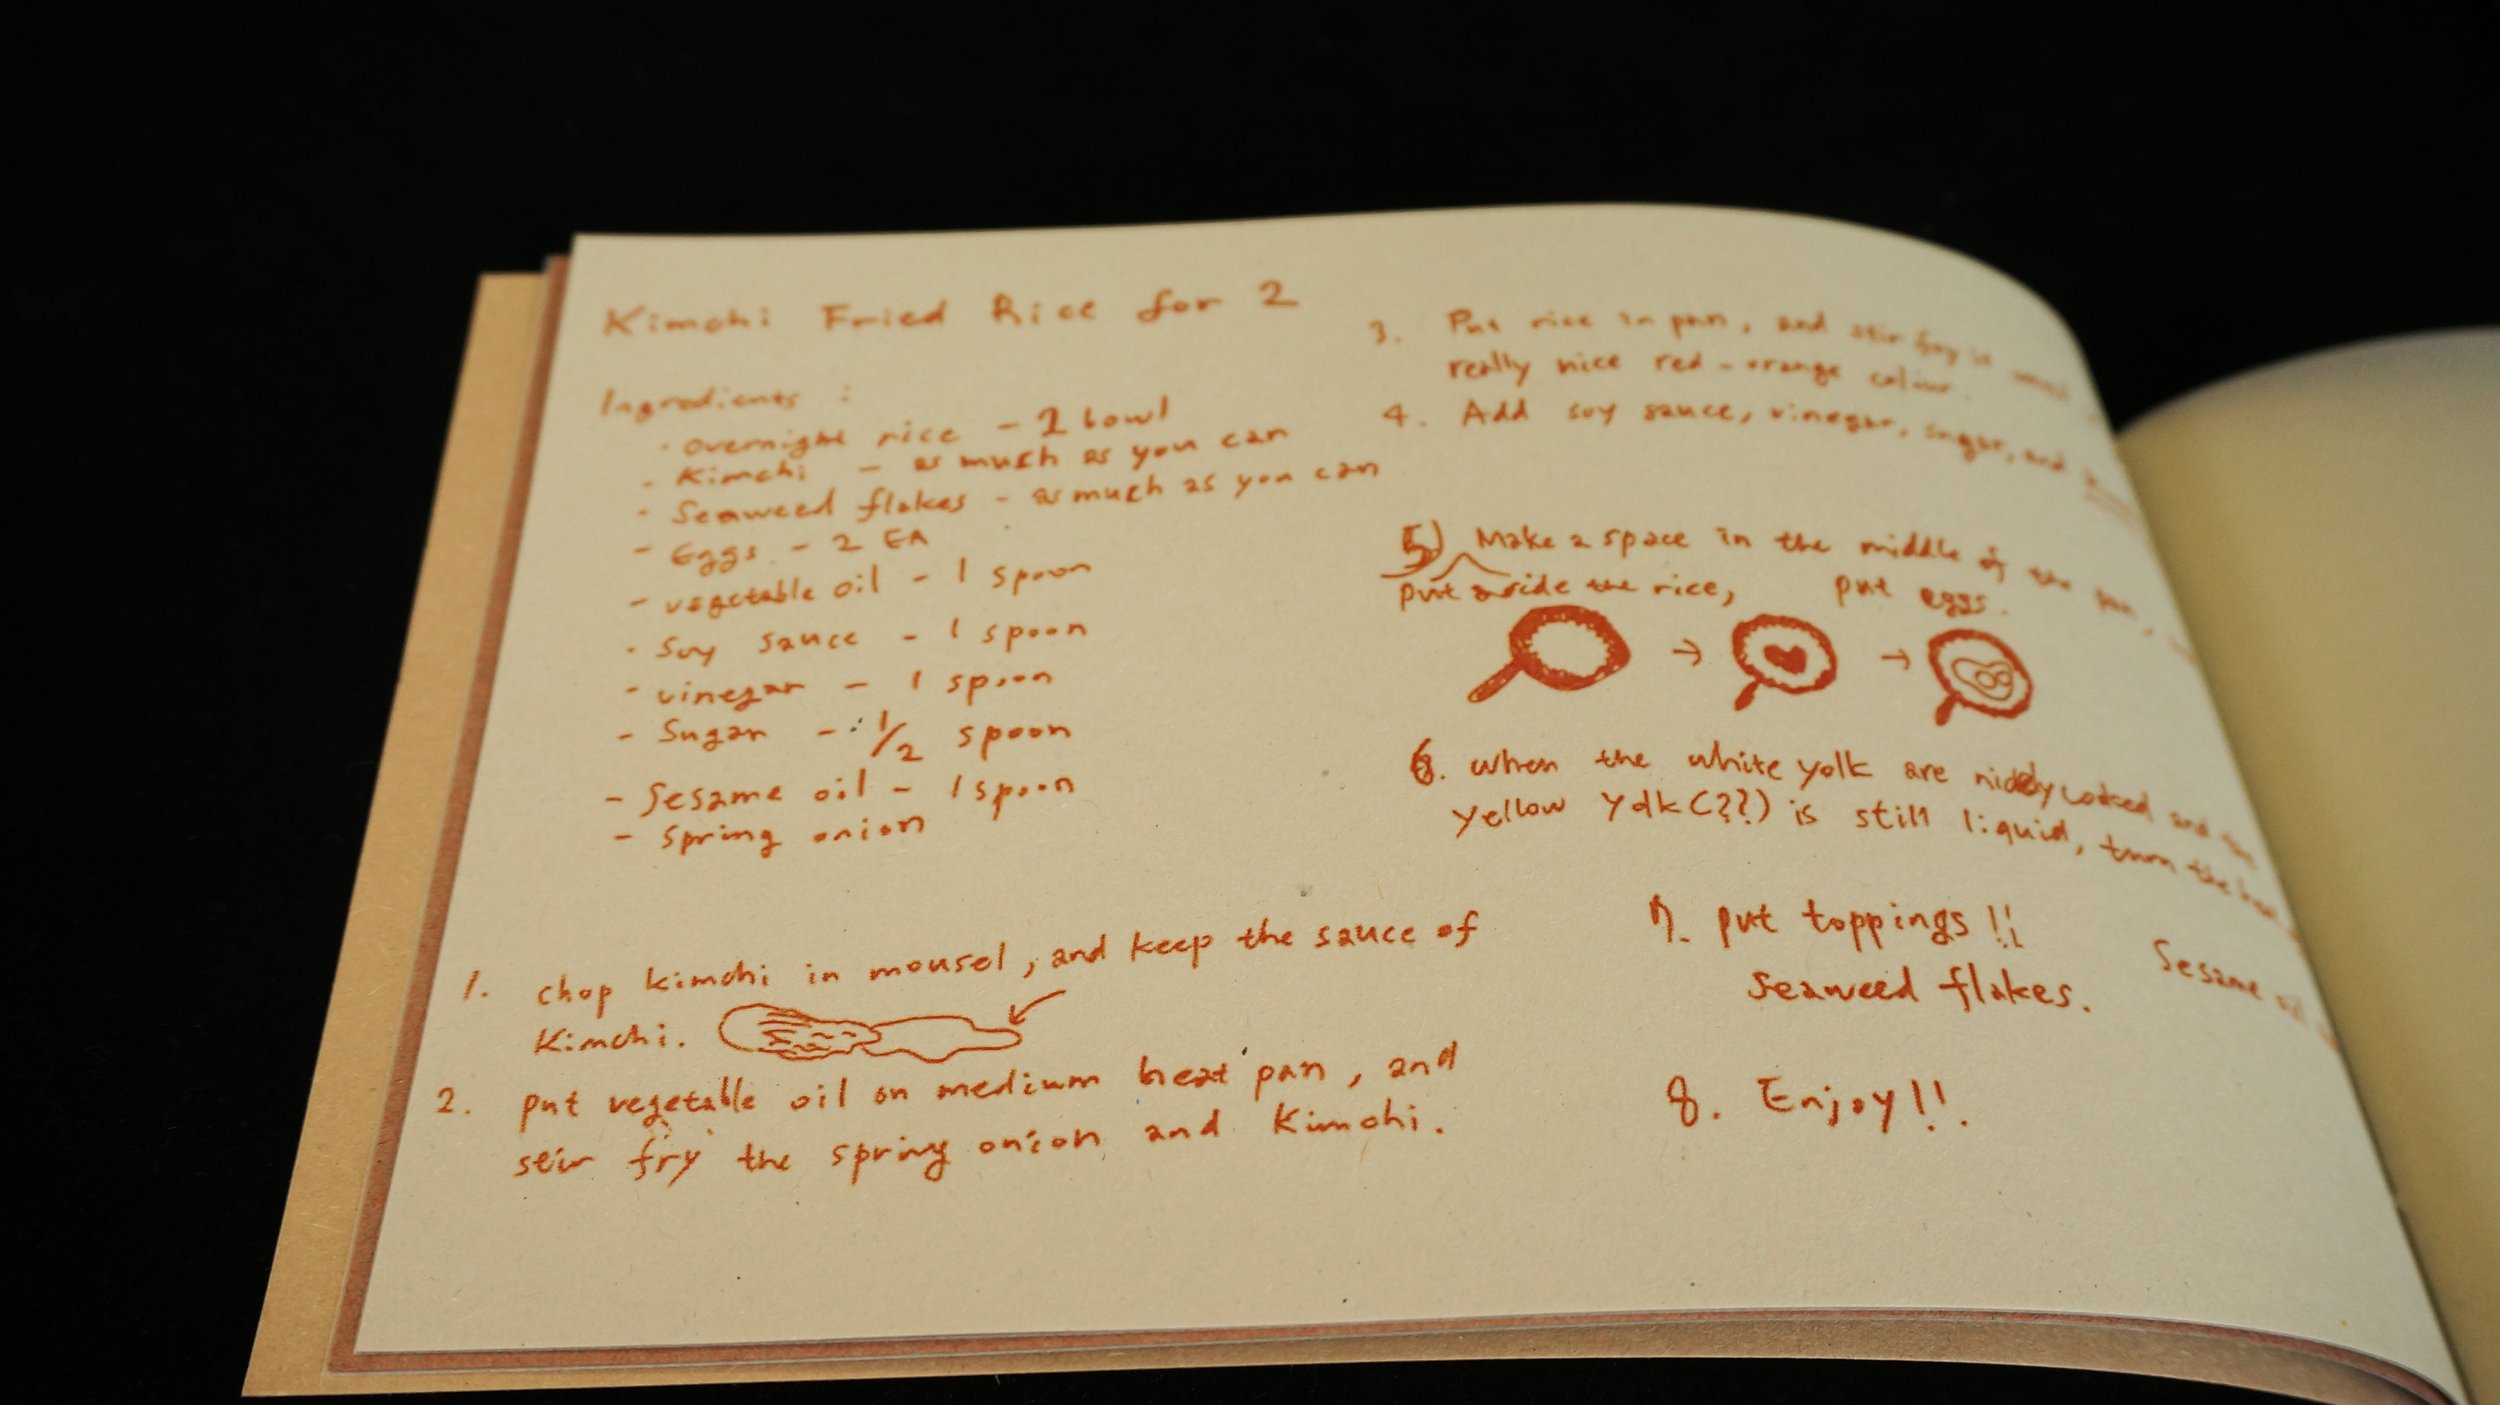 Kimchi Fried Rice for 2
Ingredients :
· overnight rice - 2 bowl
- Kimchi - as much as you can
- Seaweed flakes - as much as you can
- Eggs - 2 EA
- vegetable oil - 1 spoon
- Soy sauce - 1 spoon
- vinegar - 1 spoon
- Sugar - 1/2 spoon
- Sesame oil - 1 spoon
- Spring onion
1. chop kimchi in mousel, and keep the sauce of
Kimchi.
2. put vegetable oil on medium heat pan, and
stir fry the spring onion and Kimchi.
3. Put rice in pan, and stir fry it until
really nice red-orange colour.
4. Add soy sauce, vinegar, sugar, and
5) Make a space in the middle of the pan,
put aside the rice, put eggs.
→ →
6. when the white yolk are nicely cooked and the
yellow yolk (??) is still liquid, turn the
7. put toppings !!
Seaweed flakes. Sesame oil
8. Enjoy!!.